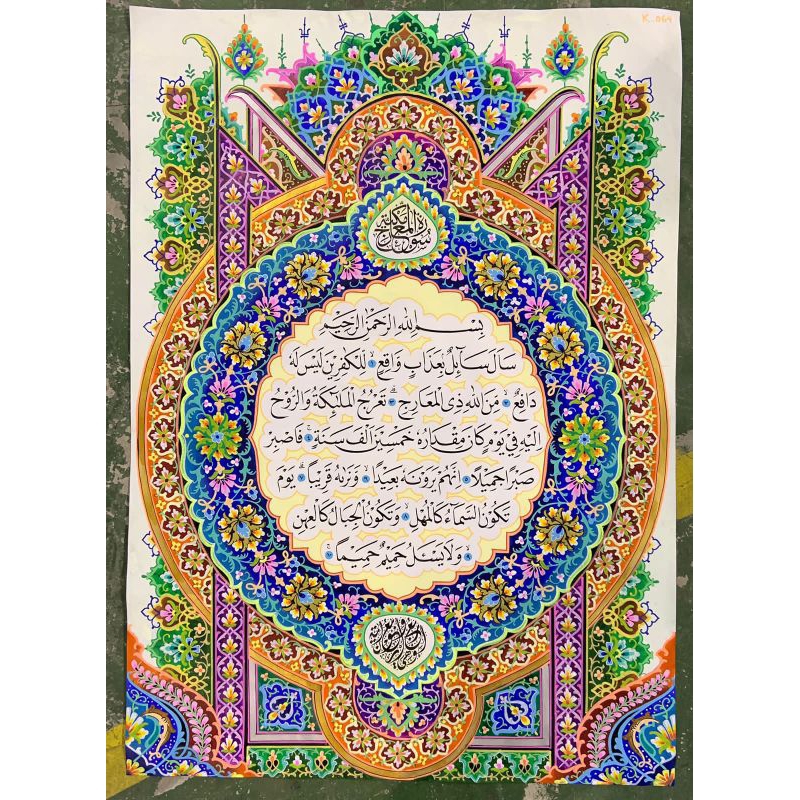 K. 064
سورة المعارج مكية
بِسْمِ اللهِ الرَّحْمٰنِ الرَّحِيْمِ
سَاَلَ سَاۤئِلٌۢ بِعَذَابٍ وَّاقِعٍۙ ١ لِّلْكٰفِرِيْنَ لَيْسَ لَهٗ
دَافِعٌۙ ٢ مِّنَ اللهِ ذِى الْمَعَارِجِۗ ٣ تَعْرُجُ الْمَلٰۤىِٕكَةُ وَالرُّوْحُ
اِلَيْهِ فِيْ يَوْمٍ كَانَ مِقْدَارُهٗ خَمْسِيْنَ اَلْفَ سَنَةٍۚ ٤ فَاصْبِرْ
صَبْرًا جَمِيْلًا ٥ اِنَّهُمْ يَرَوْنَهٗ بَعِيْدًاۙ ٦ وَّنَرٰىهُ قَرِيْبًاۗ ٧ يَوْمَ
تَكُوْنُ السَّمَاۤءُ كَالْمُهْلِۙ ٨ وَتَكُوْنُ الْجِبَالُ كَالْعِهْنِۙ
٩ وَلَا يَسْـَٔلُ حَمِيْمٌ حَمِيْمًاۚ ١٠